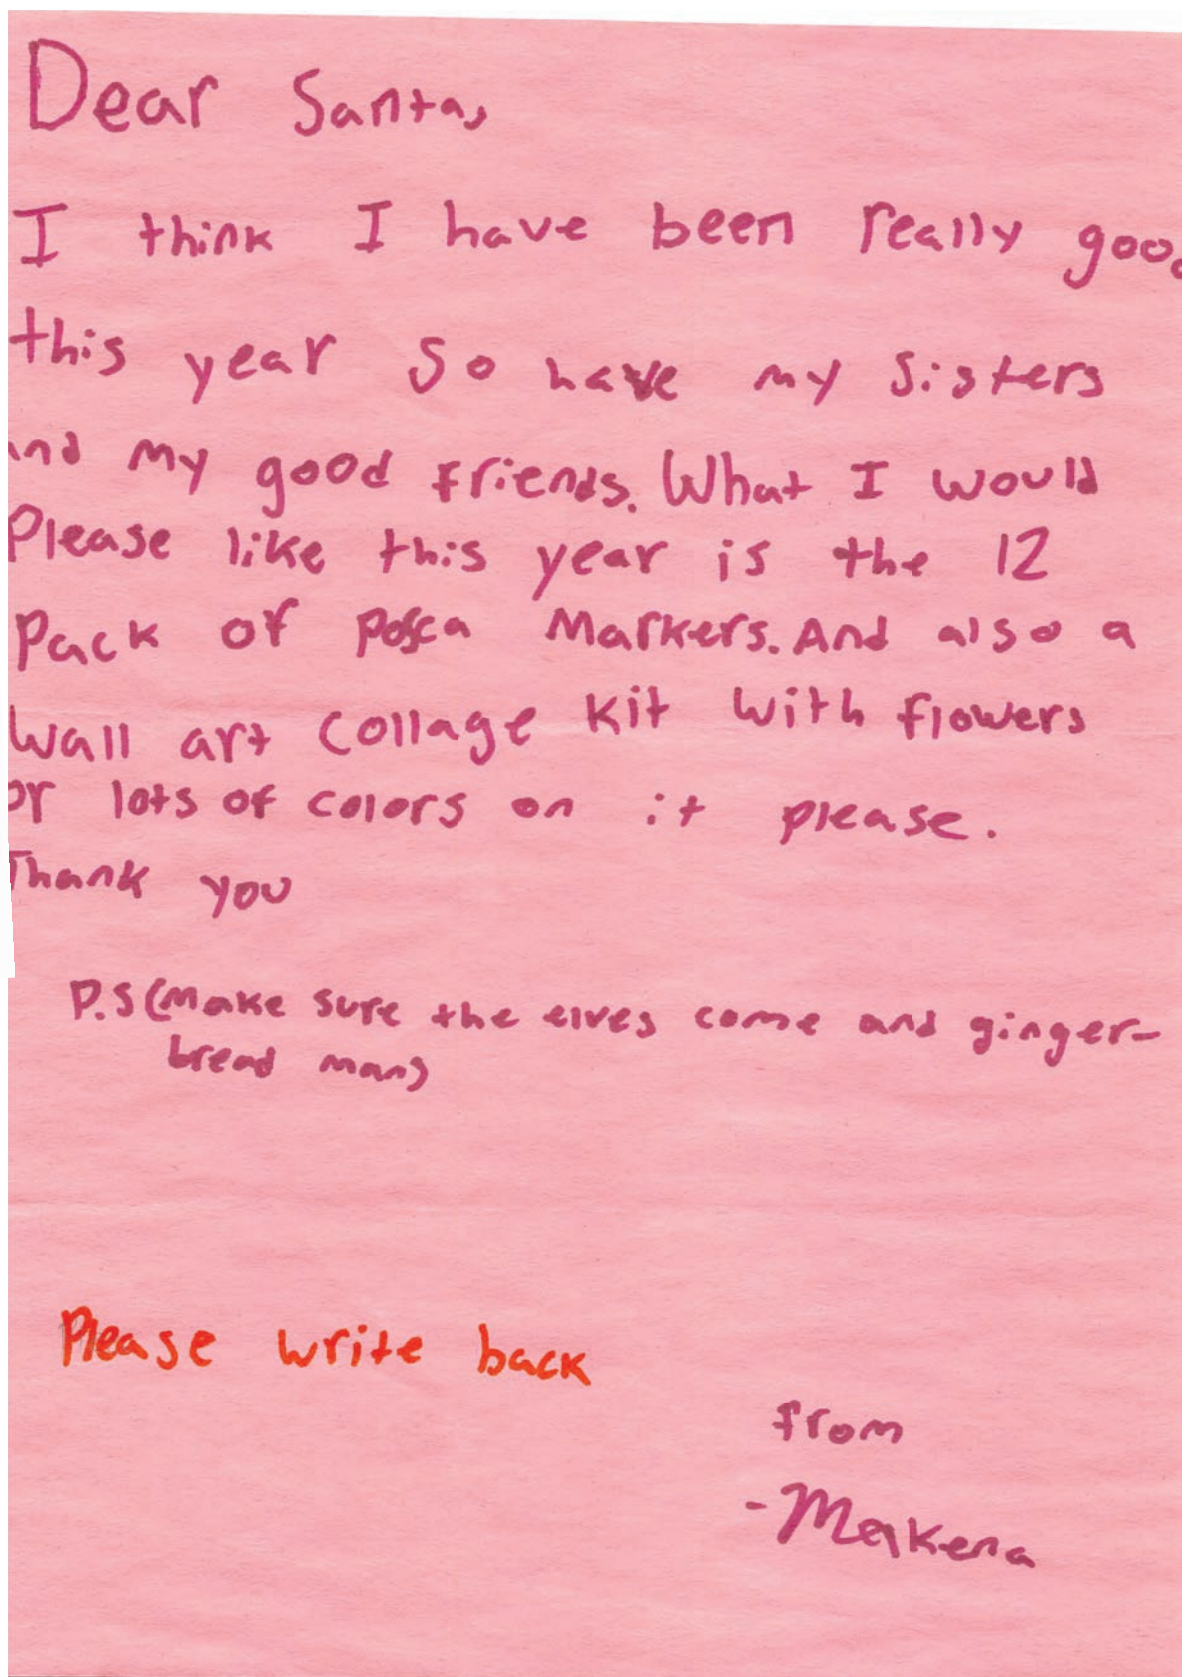 Dear Santa,
I think I have been really good
this year so have my sisters
and my good friends. What I would
Please like this year is the 12
Pack of Posca Markers. And also a
Wall art collage kit with flowers
or lots of colors on it please.
Thank you
P.S (Make sure the elves come and ginger-
bread man)
Please write back
from
-Makena